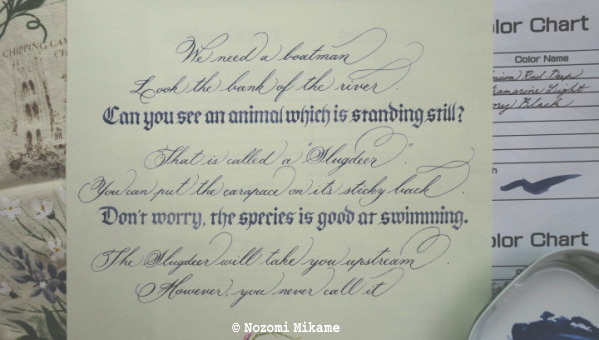 We need a boatman
Look the bank of the river.
Can you see an animal which is standing still?
That is called a "Slugdeer".
You can put the carapace on its sticky back.
Don't worry, the species is good at swimming.
The Slugdeer will take you upstream.
However, you never call it
CHIPPING CAM
olor Chart
Color Name
Light
Black
olor Chart
© Nozomi Mikame